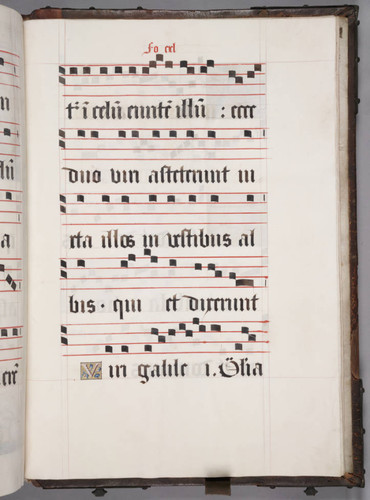 Fo cel
t' ī celū euntē illū : ecce
duo viri astiterunt iu
xta illos in vestibus al
bis · qui et dixerunt
V in galile i. Ölia